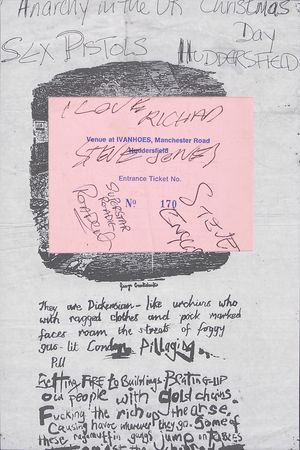 Anarchy in the UK Christmas
Day
SEX PISTOLS HUDDERSFIELD
I LOVE RICHARD
Venue at IVANHOES, Manchester Road
Huddersfield
STEVE JONES
Entrance Ticket No.
Nº 170
SUPERSTAR
ROADIE
STEVE
George Cruikshank
They are Dickensian - like urchins who
with ragged clothes and pock marked
faces roam the streets of foggy
gas-lit London Pillaging
Pill
Setting FIRE to Buildings BEATING-UP
old people with Gold chains.
Fucking the rich up the arse.
Causing havoc wherever they go. Some of
these ragamuffin gangs jump on tables
amongst the